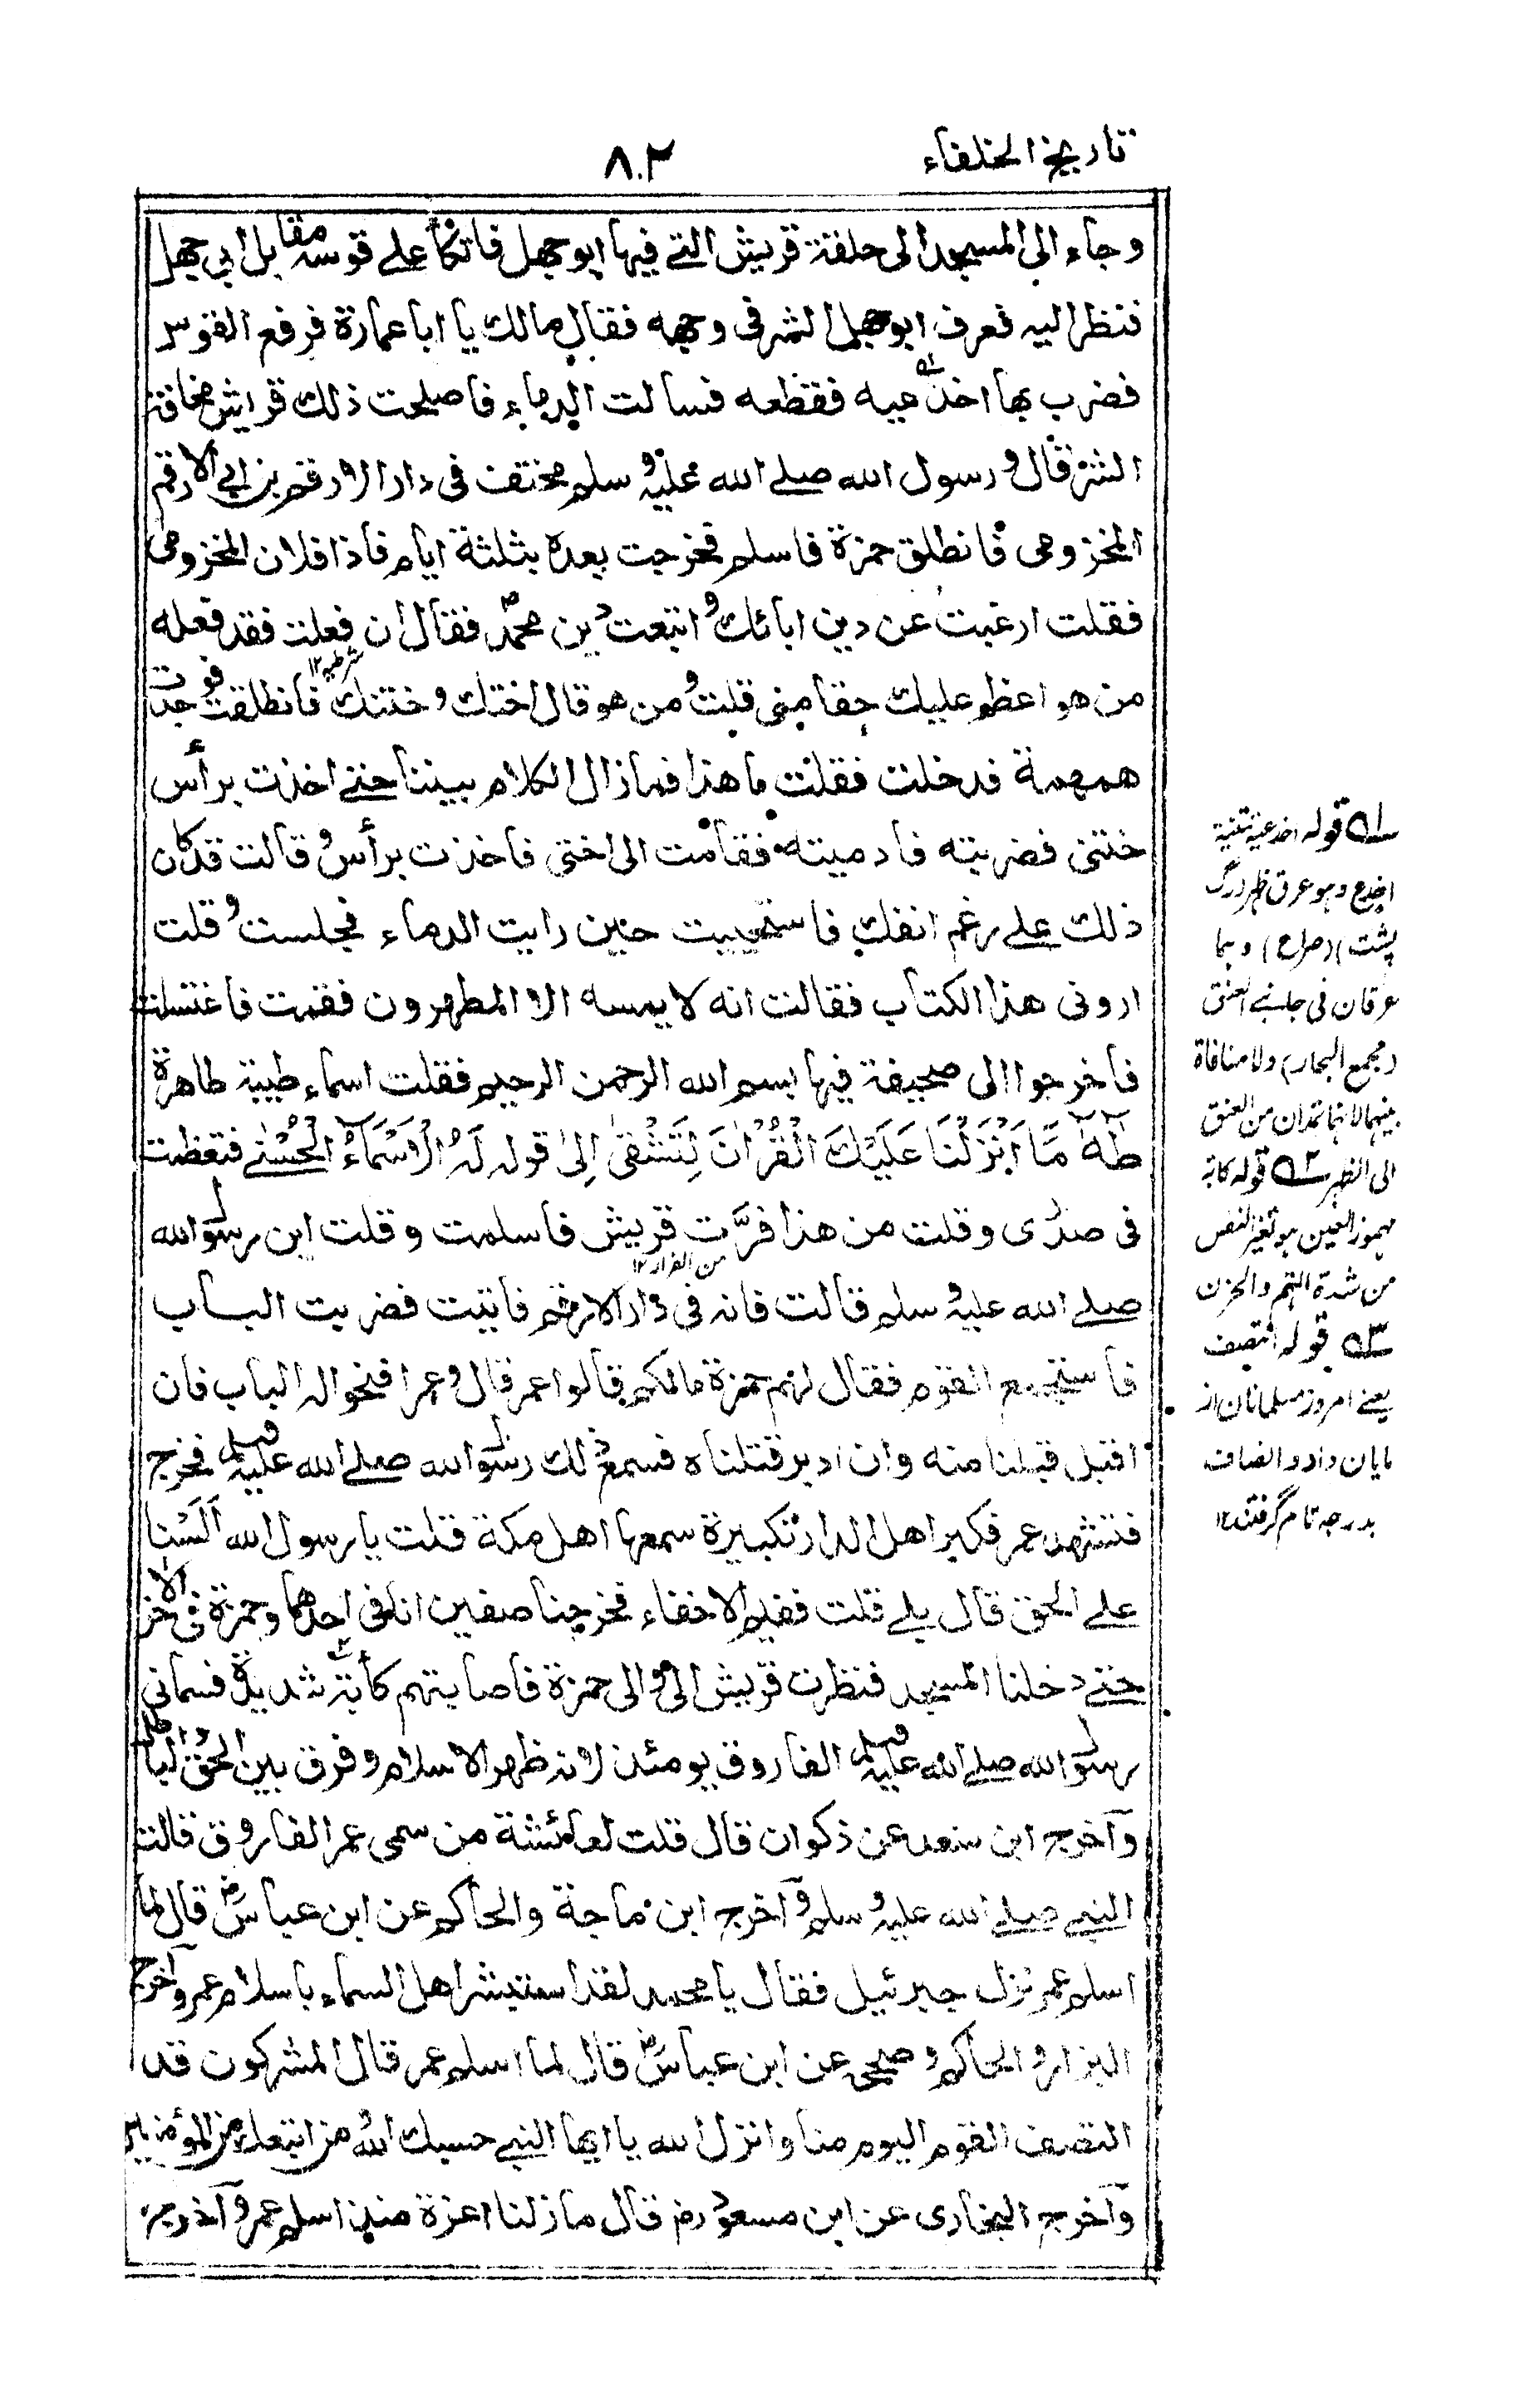 تاريخ الخلفاء
٨٠٢
وجاء الى المسجد الى حلقة قريش التے فيها ابو جهل فاتكأ علے قوسه مقابل ابي جهل
فنظر اليه فعرف ابو جهل الشر فى وجهه فقال مالك يا ابا عمارة فرفع القوس
فضرب بها اخدعيه فقطعه فسالت الدماء فاصلحت ذلك قريش مخافة
الشر قال و رسول الله صلے الله عليه و سلم مختف فى دار الارقم بن ابي الارقم
المخزومى فانطلق حمزة فاسلم فخرجت بعده بثلثة ايام فاذا فلان المخزومى
فقلت ارغبت عن دين ابائك و اتبعت دين محمد فقال ان فعلت فقد فعله
شرطيه ١٢
من هو اعظم عليك حقا منى قلت و من هو قال اختك و ختنك فانطلقت فوجدت
همهمة فدخلت فقلت ما هذا فما زال الكلام بيننا حتے اخذت برأس
ختنى فضربته فادميته فقامت الى اختى فاخذت برأسى و قالت قد كان
ذلك علے رغم انفك فاستحييت حين رايت الدماء فجلست و قلت
ارونى هذا الكتاب فقالت انه لا يمسه الا المطهرون فقمت فاغتسلت
فاخرجوا الى صحيفة فيها بسم الله الرحمن الرحيم فقلت اسماء طيبة طاهرة
طٰهٰ مَّا اَنْزَلْنَا عَلَيْكَ الْقُرْاٰنَ لِتَشْقٰى اِلىٰ قوله لَهُ الْاَسْمَاءُ الْحُسْنٰے فتعظمت
فى صدرى و قلت من هذا فرَّت قريش فاسلمت و قلت اين رسول الله
من الفرار ١٢
صلے الله عليه و سلم قالت فانه فى دار الارقم فاتيت فضربت الباب
فاستجمع القوم فقال لهم حمزة مالكم قالوا عمر قال و عمر افتحوا له الباب فان
اقبل قبلنا منه وان ادبر قتلناه فسمع ذلك رسول الله صلے الله عليه وسلم فخرج
فتشهد عمر فكبر اهل الدار تكبيرة سمعها اهل مكة قلت يا رسول الله اَلَسْنا
علے الحق قال بلے قلت ففيم الاخفاء فخرجنا صفين انا فى احدهما و حمزة فى الاخر
حتے دخلنا المسجد فنظرت قريش الى و الى حمزة فاصابتهم كأبة شديدة فسمانى
رسول الله صلے الله عليه وسلم الفاروق يومئذ لانه ظهر الاسلام و فرق بين الحق و الباطل
وآخرج ابن سعد عن ذكوان قال قلت لعائشة من سمى عمر الفاروق قالت
النبے صلے الله عليه و سلم و آخرج ابن ماجة والحاكم عن ابن عباس رض قال لما
اسلم عمر نزل جبرئيل فقال يا محمد لقد استبشر اهل السماء باسلام عمر وآخرج
البزار و الحاكم و صححه عن ابن عباس رض قال لما اسلم عمر قال المشركون قد
انتصف القوم اليوم منا وانزل الله يا ايها النبے حسبك الله و من اتبعك من المؤمنين
وآخرج البخارى عن ابن مسعود رض قال ما زلنا اعزة منذ اسلم عمر و آخرج
١ ه قوله اخدعيه تثنية
اخدع و هو عرق ظهر درگ
پشت (صراح) و هما
عرقان فى جانبے العنق
(مجمع البحار) و لا منافاة
بينهما لانهما تمتدان من العنق
الى الظهر ٢ ه قوله كابة
مهموز العين هو تغير النفس
من شدة الهم و الحزن
٣ ه قوله انتصف
يعنے امروز مسلمانان از
مايان داد و انصاف
بدرجه تمام گرفتند ١٢